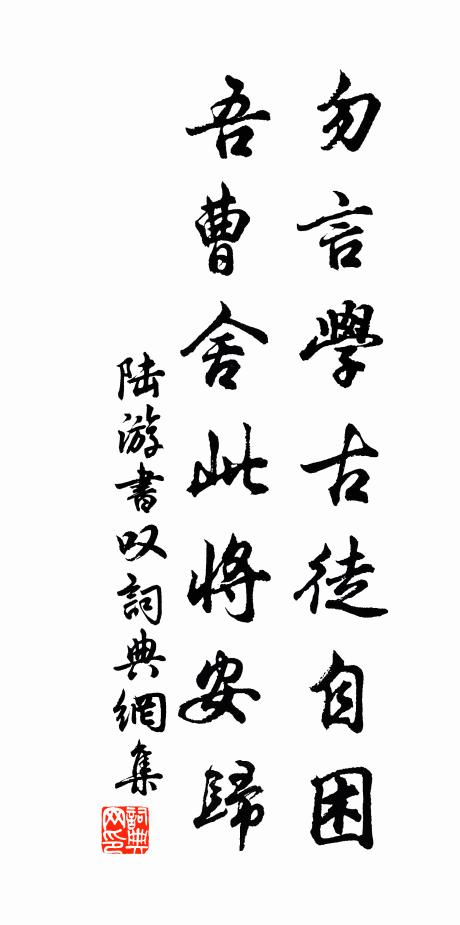 勿言學古徒自困
吾曹舍此將安歸
陆游書叹詞典網集
詞典网印